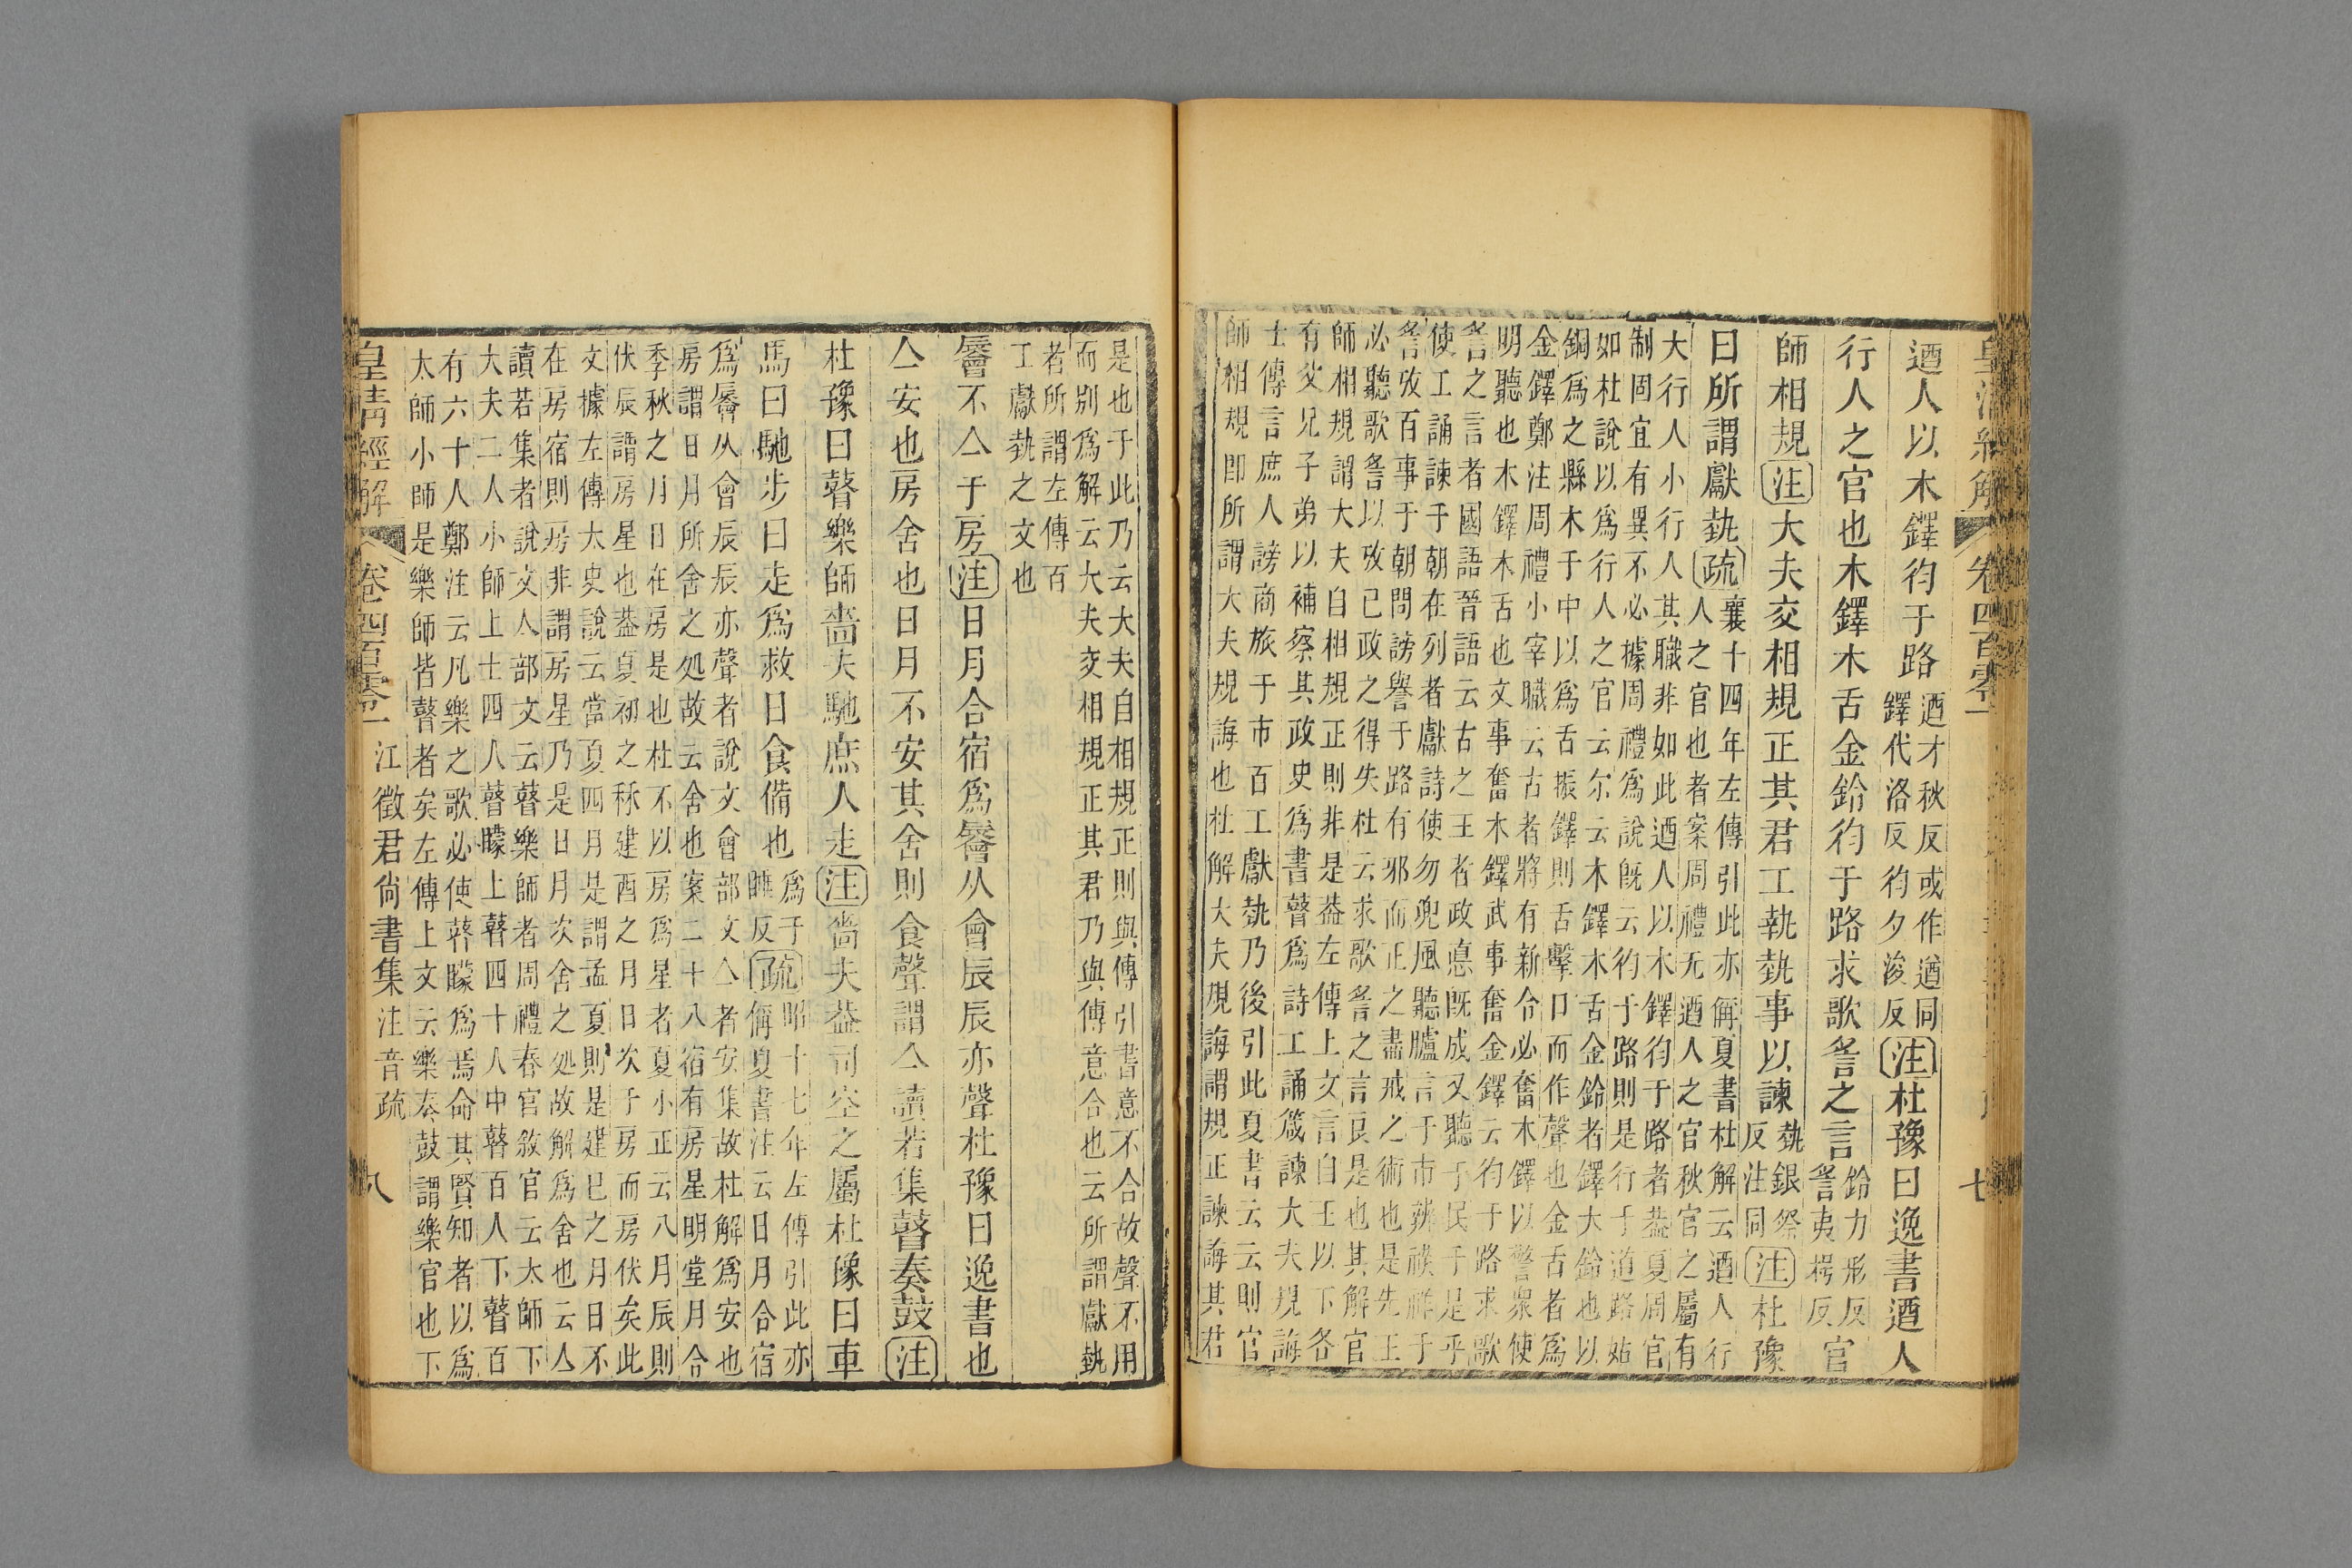 皇清經解 卷四百零一 七
遒人以木鐸徇于路
遒才秋反或作遒同
鐸代洛反徇夕浚反
注杜豫曰逸書遒人
行人之官也木鐸木舌金鈴徇于路求歌䛬之言
鈴力形反
䛬夷楞反
官
師相規注大夫交相規正其君工執埶事以諫
埶銀祭
反注同
注杜豫
曰所謂獻埶疏
襄十四年左傳引此亦偁夏書杜解云遒人行
人之官也者案周禮无遒人之官秋官之屬有
大行人小行人其職非如此遒人以木鐸徇于路者葢夏周官
制固宜有異不必據周禮爲說旣云徇于路則是行于道路姑
如杜說以爲行人之官云尔云木鐸木舌金鈴者鐸大鈴也以
銅爲之縣木于中以爲舌振鐸則舌擊口而作聲也金舌者爲
金鐸鄭注周禮小宰職云古者將有新令必奮木鐸以警衆使
明聽也木鐸木舌也文事奮木鐸武事奮金鐸云徇于路求歌
䛬之言者國語晉語云古之王者政悳旣成又聽于民于是乎
使工誦諫于朝在列者獻詩使勿兜風聽臚言于市辨祅祥于
䛬攷百事于朝問謗譽于路有邪而正之盡戒之術也是先王
必聽歌䛬以攷已政之得失杜云求歌䛬之言良是也其解官
師相規謂大夫自相規正則非是葢左傳上文言自王以下各
有父兄子弟以補察其政史爲書瞽爲詩工誦箴諫大夫規誨
士傳言庶人謗商旅于市百工獻埶乃後引此夏書云云則官
師相規卽所謂大夫規誨也杜解大夫規誨謂規正諫誨其君
是也于此乃云大夫自相規正則與傳引書意不合故聲不用
而別爲解云大夫交相規正其君乃與傳意合也云所謂獻埶
者所謂左傳百
工獻埶之文也
䢅不亼于房注日月合宿爲䢅从會辰辰亦聲杜豫曰逸書也
亼安也房舍也日月不安其舍則食聲謂亼讀若集瞽奏鼓注
杜豫曰瞽樂師嗇夫馳庶人走注嗇夫葢司空之屬杜豫曰車
馬曰馳步曰走爲救日食備也
爲于
睡反
疏
昭十七年左傳引此亦
偁夏書注云日月合宿
爲䢅从會辰辰亦聲者說文會部文亼者安集故杜解爲安也
房謂日月所舍之処故云舍也案二十八宿有房星明堂月令
季秋之月日在房是也杜不以房爲星者夏小正云八月辰則
伏辰謂房星也葢夏初之秝建酉之月日次于房而房伏矣此
文據左傳大史說云當夏四月是謂孟夏則是建巳之月日不
在房宿則房非謂房星乃是日月次舍之処故解爲舍也云亼
讀若集者說文亼部文云瞽樂師者周禮春官敘官云大師下
大夫二人小師上士四人瞽矇上瞽四十人中瞽百人下瞽百
有六十人鄭注云凡樂之歌必使瞽矇爲焉命其賢知者以爲
太師小師是樂師皆瞽者矣左傳上文云樂奏鼓謂樂官也下
皇清經解 卷四百零一 江徵君尙書集注音疏 八